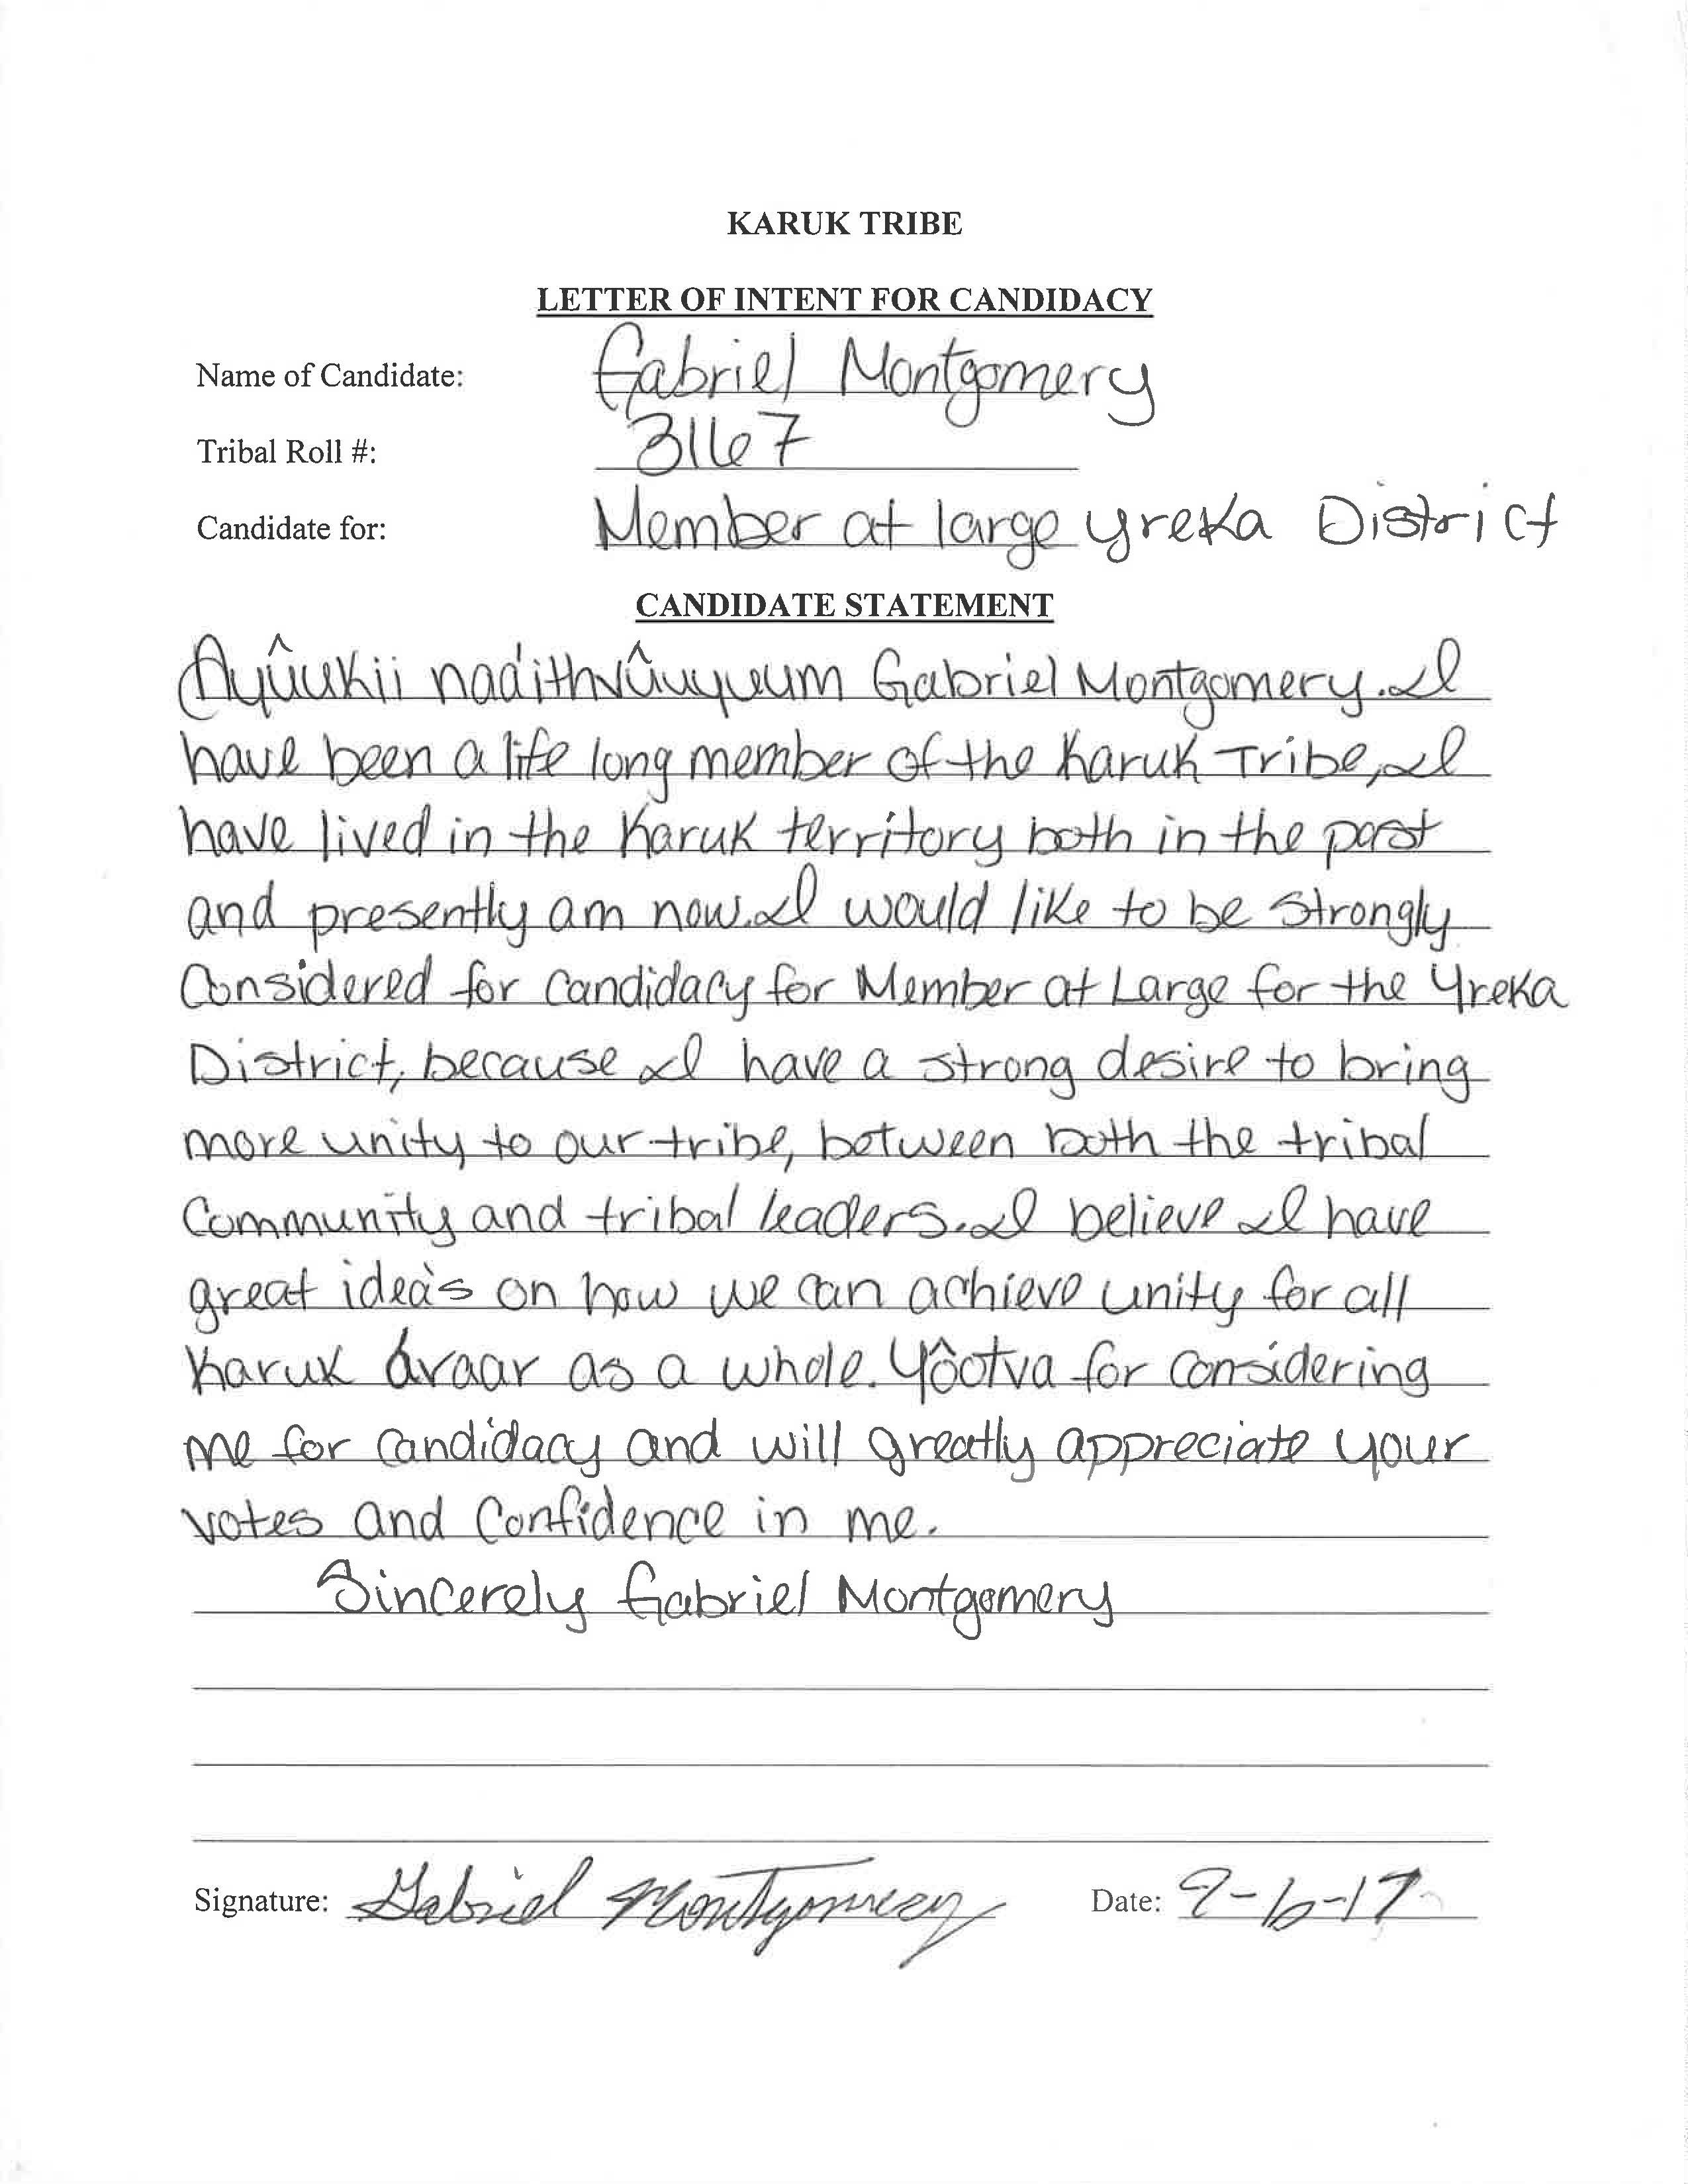 KARUK TRIBE
LETTER OF INTENT FOR CANDIDACY
Name of Candidate: Gabriel Montgomery
Tribal Roll #: 3167
Candidate for: Member at large Yreka District
CANDIDATE STATEMENT
Ayûukii naa'ithvûuyveum Gabriel Montgomery. I
have been a life long member of the Karuk Tribe, I
have lived in the Karuk territory both in the past
and presently am now. I would like to be strongly
Considered for candidacy for Member at Large for the Yreka
District, because I have a strong desire to bring
more unity to our tribe, between both the tribal
Community and tribal leaders. I believe I have
great idea's on how we can achieve unity for all
Karuk áraar as a whole. Yôotva for considering
me for candidacy and will greatly appreciate your
votes and confidence in me.
Sincerely Gabriel Montgomery
Signature: Gabriel Montgomery Date: 9-6-17